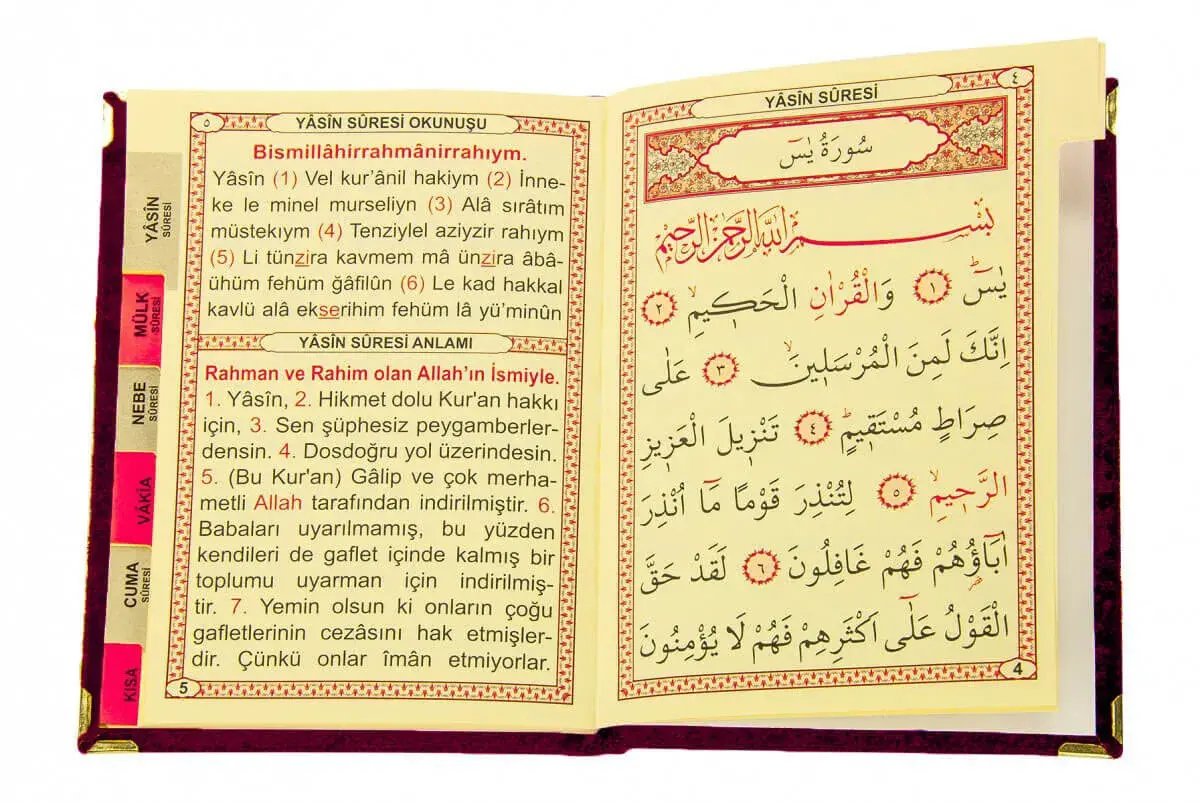 YÂSÎN SÛRESİ
٤
سُورَةُ يٰسٓ
بِسْمِ اللّٰهِ الرَّحْمٰنِ الرَّحِيمِ
يٰسٓۜ ﴿١﴾ وَالْقُرْاٰنِ الْحَك۪يمِۙ ﴿٢﴾
اِنَّكَ لَمِنَ الْمُرْسَل۪ينَۙ ﴿٣﴾ عَلٰى
صِرَاطٍ مُسْتَق۪يمٍۜ ﴿٤﴾ تَنْز۪يلَ الْعَز۪يزِ
الرَّح۪يمِۙ ﴿٥﴾ لِتُنْذِرَ قَوْمًا مَٓا اُنْذِرَ
اٰبَٓاؤُ۬هُمْ فَهُمْ غَافِلُونَ ﴿٦﴾ لَقَدْ حَقَّ
الْقَوْلُ عَلٰٓى اَكْثَرِهِمْ فَهُمْ لَا يُؤْمِنُونَ
4
٥
YÂSÎN SÛRESİ OKUNUŞU
Bismillâhirrahmânirrahıym.
Yâsîn (1) Vel kur’ânil hakiym (2) İnne-
ke le minel murseliyn (3) Alâ sırâtım
müstekıym (4) Tenziylel aziyzir rahıym
(5) Li tünzira kavmem mâ ünzira âbâ-
ühüm fehüm ğâfilûn (6) Le kad hakkal
kavlü alâ ekserihim fehüm lâ yü’minûn
YÂSÎN SÛRESİ ANLAMI
Rahman ve Rahim olan Allah’ın İsmiyle.
1. Yâsîn, 2. Hikmet dolu Kur'an hakkı
için, 3. Sen şüphesiz peygamberler-
densin. 4. Dosdoğru yol üzerindesin.
5. (Bu Kur'an) Gâlip ve çok merha-
metli Allah tarafından indirilmiştir. 6.
Babaları uyarılmamış, bu yüzden
kendileri de gaflet içinde kalmış bir
toplumu uyarman için indirilmiş-
tir. 7. Yemin olsun ki onların çoğu
gafletlerinin cezâsını hak etmişler-
dir. Çünkü onlar îmân etmiyorlar.
5
YÂSÎN
SÛRESİ
MÜLK
SÛRESİ
NEBE
SÛRESİ
VÂKİA
CUMA
SÛRESİ
KISA